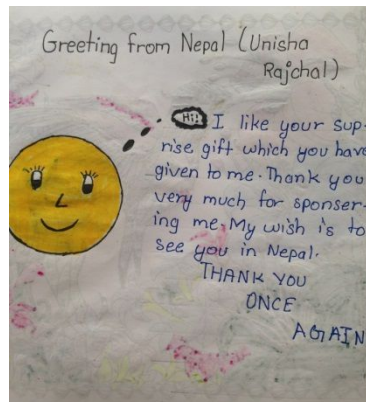 Greeting from Nepal (Unisha
Rajchal)
Hi!
I like your sup-
rise gift which you have
given to me. Thank you
very much for sponser-
ing me. My wish is to
see you in Nepal.
THANK YOU
ONCE
AGAIN